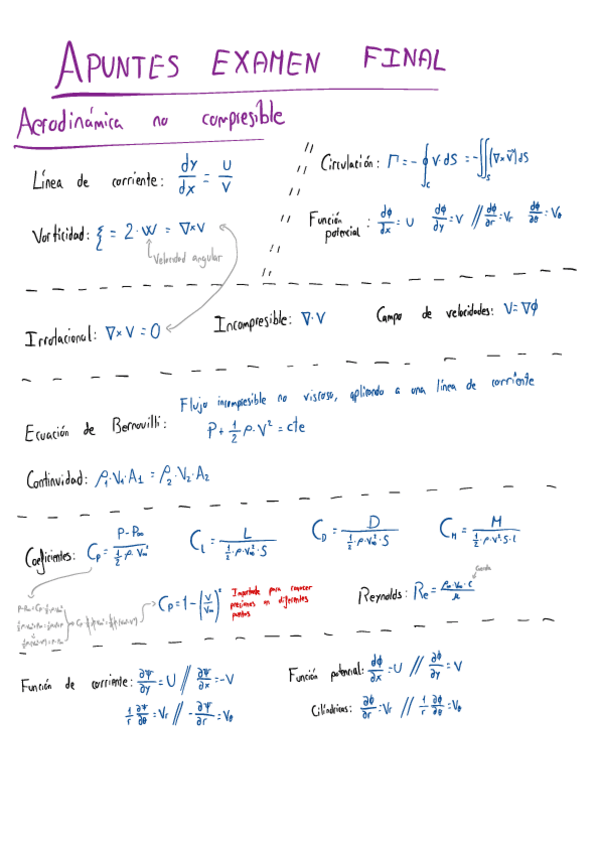 APUNTES EXAMEN FINAL
Aerodinámica no compresible
Línea de corriente: dy/dx = U/V
Circulación: Γ = -∮_C V·dS = -∬_S (∇×V⃗)dS
Vorticidad: ξ = 2·W = ∇×V
Velocidad angular
Función potencial: dϕ/dx = U dϕ/dy = V // dϕ/dr = Vr dϕ/dθ = Vθ
Irrotacional: ∇×V = 0
Incompresible: ∇·V
Campo de velocidades: V = ∇ϕ
Flujo incompresible no viscoso, aplicando a una línea de corriente
Ecuación de Bernouilli: P + 1/2 ρ·V² = cte
Continuidad: ρ₁·V₁·A₁ = ρ₂·V₂·A₂
Coeficientes: Cp = (P-P∞)/(1/2·ρ·V∞²) C_L = L/(1/2·ρ·V∞²·S) C_D = D/(1/2·ρ·V∞²·S) C_M = M/(1/2·ρ·V²·S·c)
Cp = 1-(V/V∞)²
Importante para conocer presiones en diferentes puntos
Cuerda
Reynolds: Re = ρ∞·V∞·c/μ
Función de corriente: ∂Ψ/∂y = U // ∂Ψ/∂x = -V
1/r ∂Ψ/∂θ = Vr // -∂Ψ/∂r = Vθ
Función potencial: dϕ/∂x = U // ∂ϕ/∂y = V
Cilíndricas: ∂ϕ/∂r = Vr // 1/r ∂ϕ/∂θ = Vθ